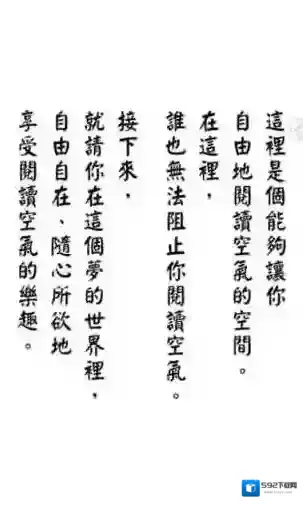 這裡是個能夠讓你
自由地閱讀空氣的空間。
在這裡，
誰也無法阻止你閱讀空氣。
接下來，
就請你在這個夢的世界裡，
自由自在、隨心所欲地
享受閱讀空氣的樂趣。
592下载网